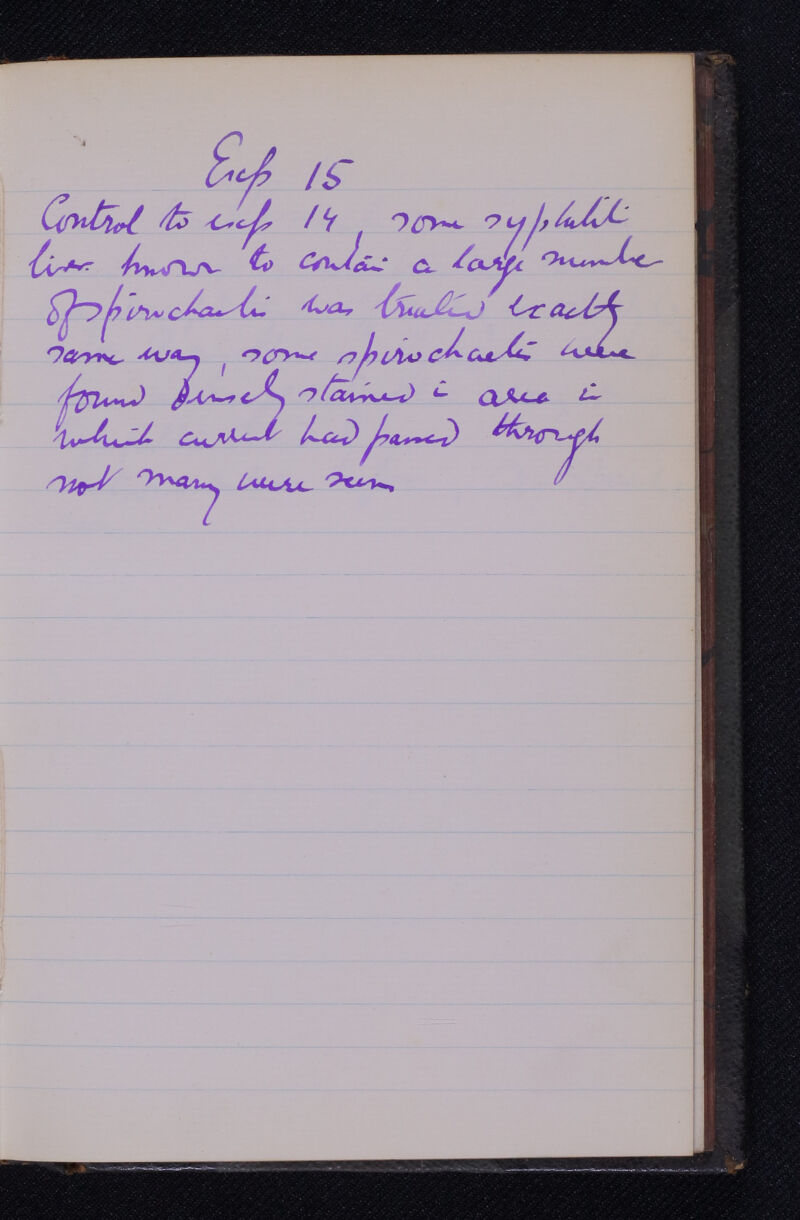 Exp 15
Control to exp 14, some syphilitic
liver known to contain a large number
of spirochaetes was treated exactly
same way, some spirochaetes were
found densely stained in area in
which current had passed through
not many were seen